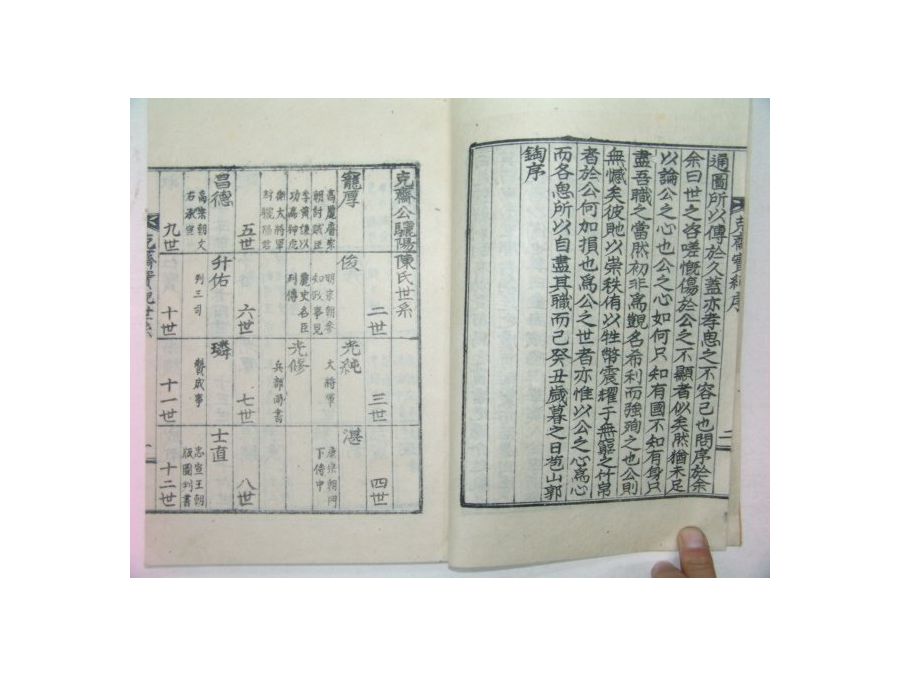 克齋實紀序
二
通圖所以傳於久蓋亦孝思之不容已也問序於余
余曰世之咨嗟慨傷於公之不顯者似矣然猶未足
以論公之心也公之心如何只知有國不知有身只
盡吾職之當然初非爲覬名希利而強殉之也公則
無憾矣彼貤以崇秩侑以牲幣震耀于無窮之竹帛
者於公何加損也爲公之世者亦惟以公之心爲心
而各思所以自盡其職而已癸丑歲暮之日苞山郭
鋾序
克齋公驪陽陳氏世系
二世
三世
四世
寵厚
高麗睿宗
朝討賊臣
李資謙以
功高神虎
衛大將軍
封驪陽君
俊
明宗朝參
知政事見
麗史名臣
列傳
光純
大將軍
光修
兵部尚書
湛
康宗朝門
下侍中
五世
六世
七世
八世
昌德
高宗朝文
右承宣
升佑
列三司
璘
贊成事
士直
忠宣王朝
版圖判書
九世
十世
十一世
十二世
克齋實紀世系
一